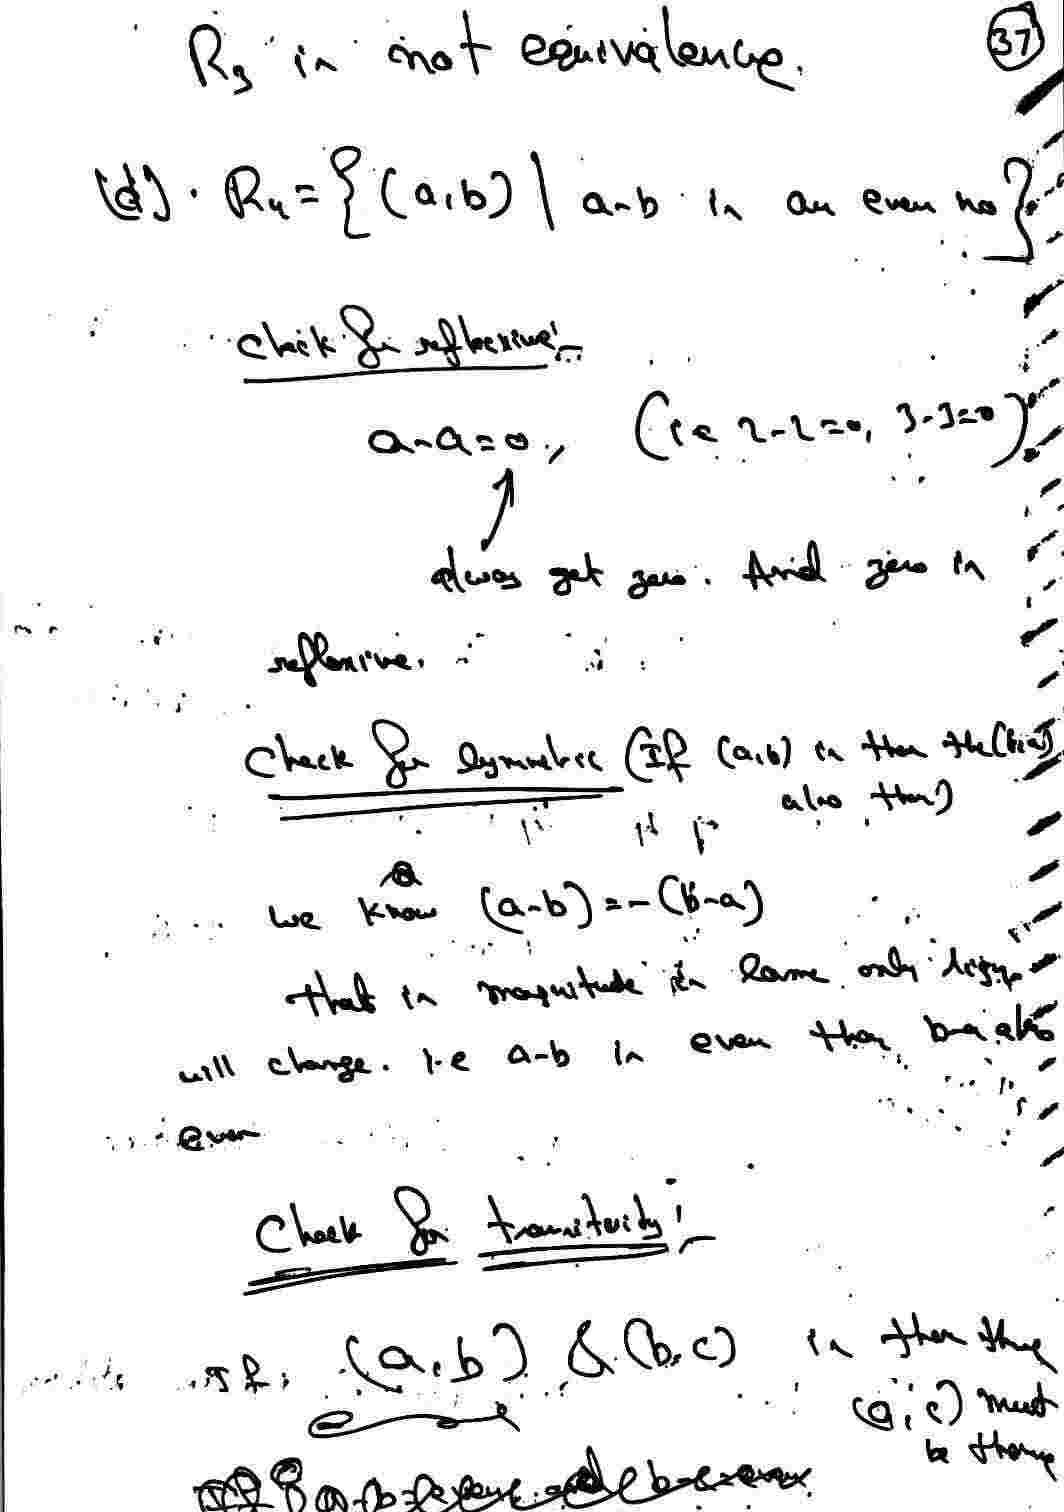 37
R₃ is not equivalence.
(d). R₄ = { (a,b) | a-b is an even no }
Check for reflexive:-
a-a=0, (ie 2-2=0, 3-3=0)
always get zero. And zero is
reflexive.
Check for Symmetric (If (a,b) is then the (b,a)
also then)
we know (a-b) = -(b-a)
that is magnitude is same only sign
will change. i.e a-b is even then b-a also
even
Check for transitivity:-
If (a,b) & (b,c) is then
(a,c) must
be there